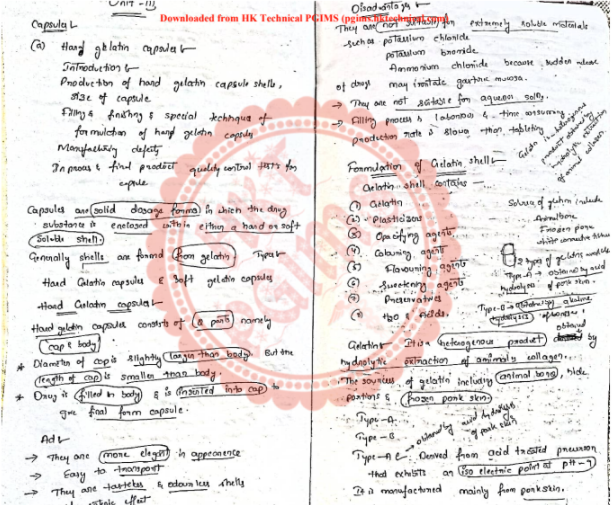 Unit - III
Downloaded from HK Technical PGIMS (pgims.hktechnical.com)
Capsules
(a) Hard gelatin capsules
Introduction
Production of hard gelatin capsule shells,
size of capsule
Filling, finishing & special technique of
formulation of hard gelatin capsules
Manufacturing defects
In process & final product quality control tests for
capsule
Capsules are solid dosage forms in which the drug
substance is enclosed within either a hard or soft
soluble shell.
Generally shells are formed from gelatin. Types
Hard Gelatin capsules & Soft gelatin capsules
Hard Gelatin capsules
Hard gelatin capsules consists of 2 parts namely
cap & body
* Diameter of cap is slightly larger than body. But the
length of cap is smaller than body.
* Drug is filled in body & is inserted into cap to
give final form capsule.
Adv
→ They are more elegant in appearence
→ Easy to transport
→ They are tasteless & odourless shells
effect
Disadvantages
They are not suitable for extremely soluble materials
such as potassium chloride
potassium bromide
Ammonium chloride because sudden release
of drugs may irritate gastric mucosa.
→ They are not suitable for aqueous soln.
→ Filling process is laborious & time consuming
production rate is slower than tabletting
Gelatin is heterogenous
product obtained by
hydrolytic extraction
of animal collagen
Formulation of Gelatin shell
Gelatin shell contains
(1) Gelatin
(2) Plasticizers
(3) Opacifying agents
(4) Colouring agents
(5) Flavouring agents
(6) Sweetening agents
(7) Preservatives
Sources of gelatin include
Animal bone
Frozen pork
white connective tissue
2 types of gelatin available
Type-A → obtained by acid
hydrolysis of pork skin.
Type-B → alkaline
hydrolysis of bones,
Gelatin: It is a heterogenous product obtained by
hydrolytic extraction of animals collagen.
The sources of gelatin including animal bone, hide
portions & frozen pork skin.
Type-A
Type-B
obtained by acid hydrolysis
of pork skin
Type-A Derived from acid treated precursor
that exhibits an iso electric point at pH-9
It is manufactured mainly from pork skin.